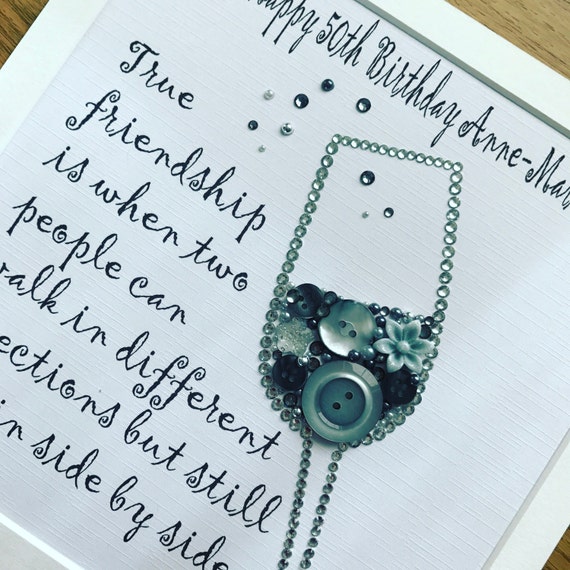 Happy 50th Birthday Anne-Mar
True
friendship
is when two
people can
walk in different
ections but still
in side by side